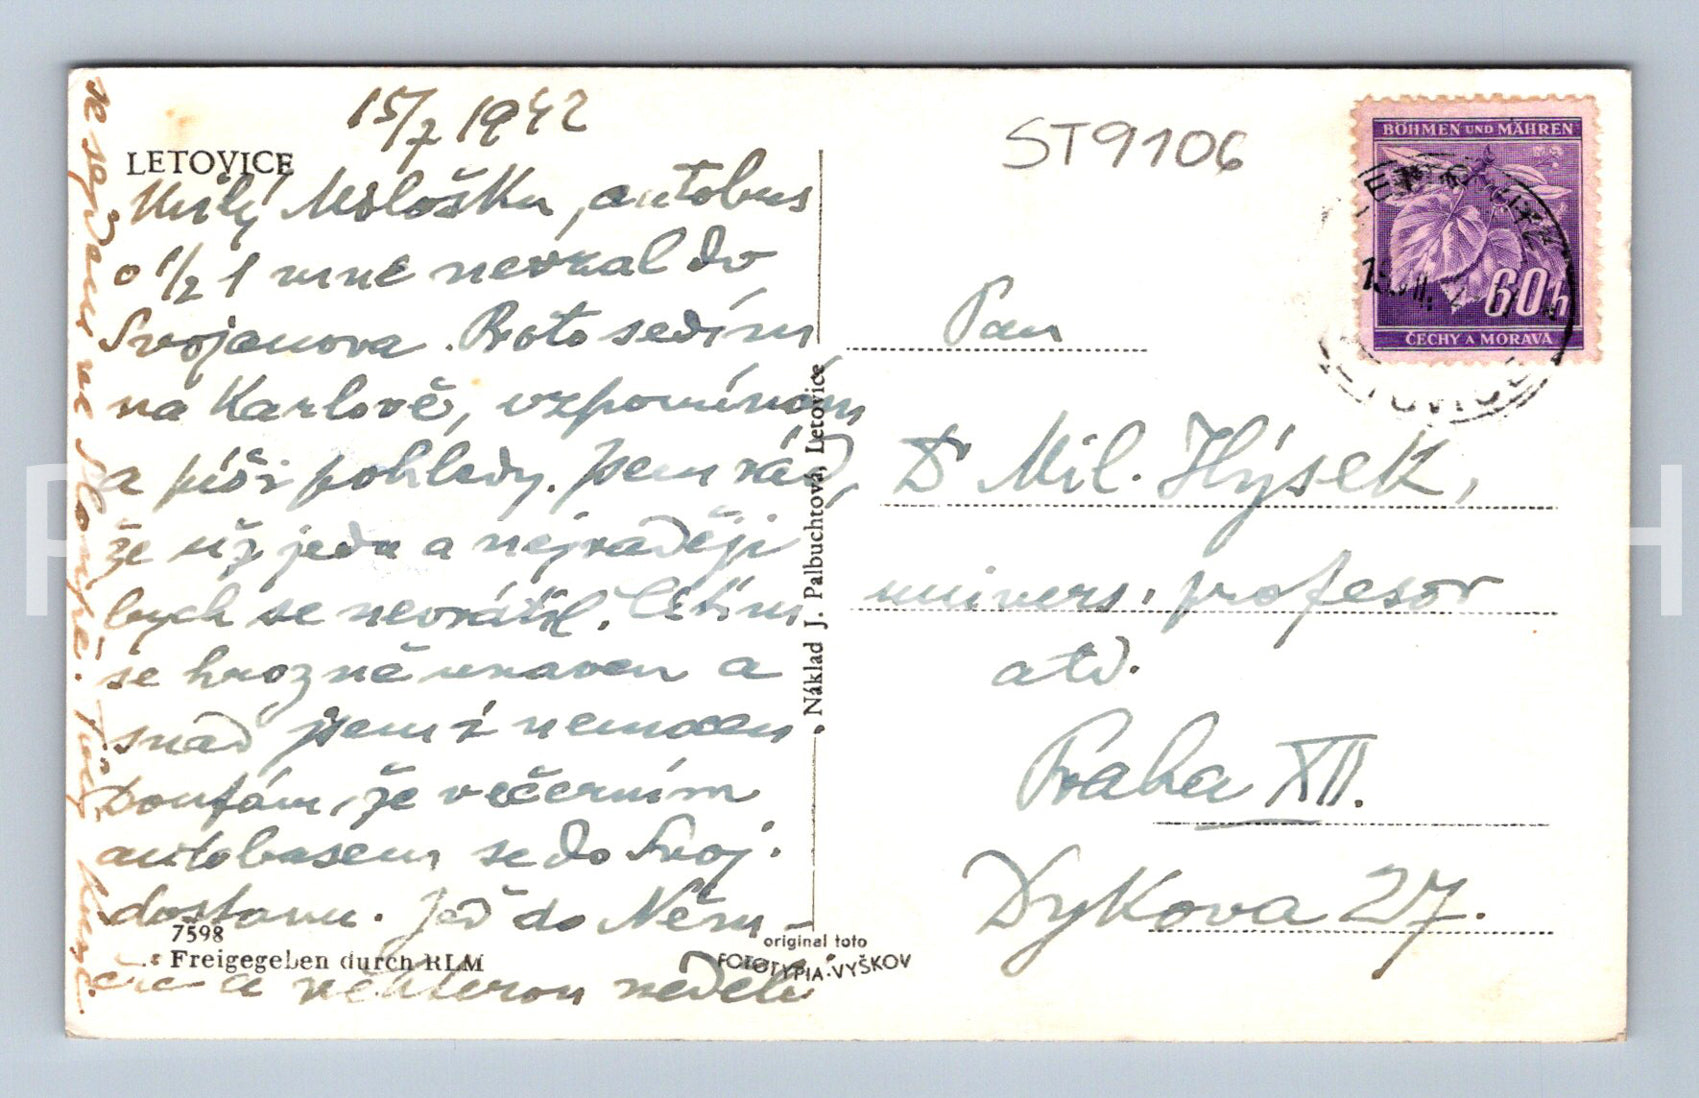 15/7 1942
LETOVICE
Milý Milošku, autobus
o 1/2 1 mně nevzal do
Svojanova. Proto sedím
na Karlově, vzpomínám
a píši pohledy. Jsem rád,
že už jedu a nejraději
bych se nevrátil. Cítím
se hrozně unaven a
snad jsem i nemocen.
Doufám, že večerním
autobusem se do Svoj.
dostanu. Jeď do Něm-
čic a některou neděli
se sejdeme na Tvůj
7598
Freigegeben durch RLM
Náklad J. Palbuchtová, Letovice
original foto
FOTOTYPIA-VYŠKOV
ST9106
BÖHMEN UND MÄHREN
60h
ČECHY A MORAVA
LETOVICE
Pan
Dr Mil. Hýsek,
univers. profesor
atd.
Praha XII.
Dykova 27.